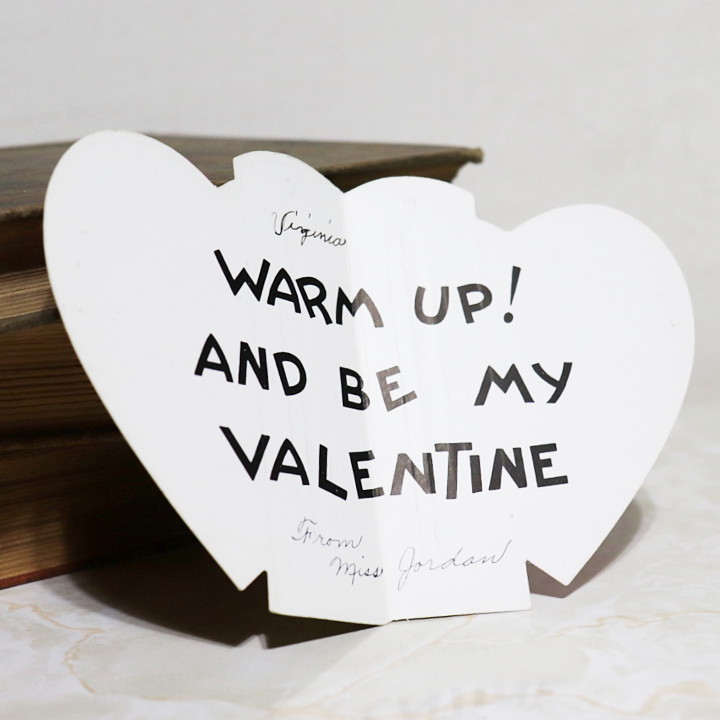 Virginia
WARM UP!
AND BE MY
VALENTINE
From
Miss Jordan